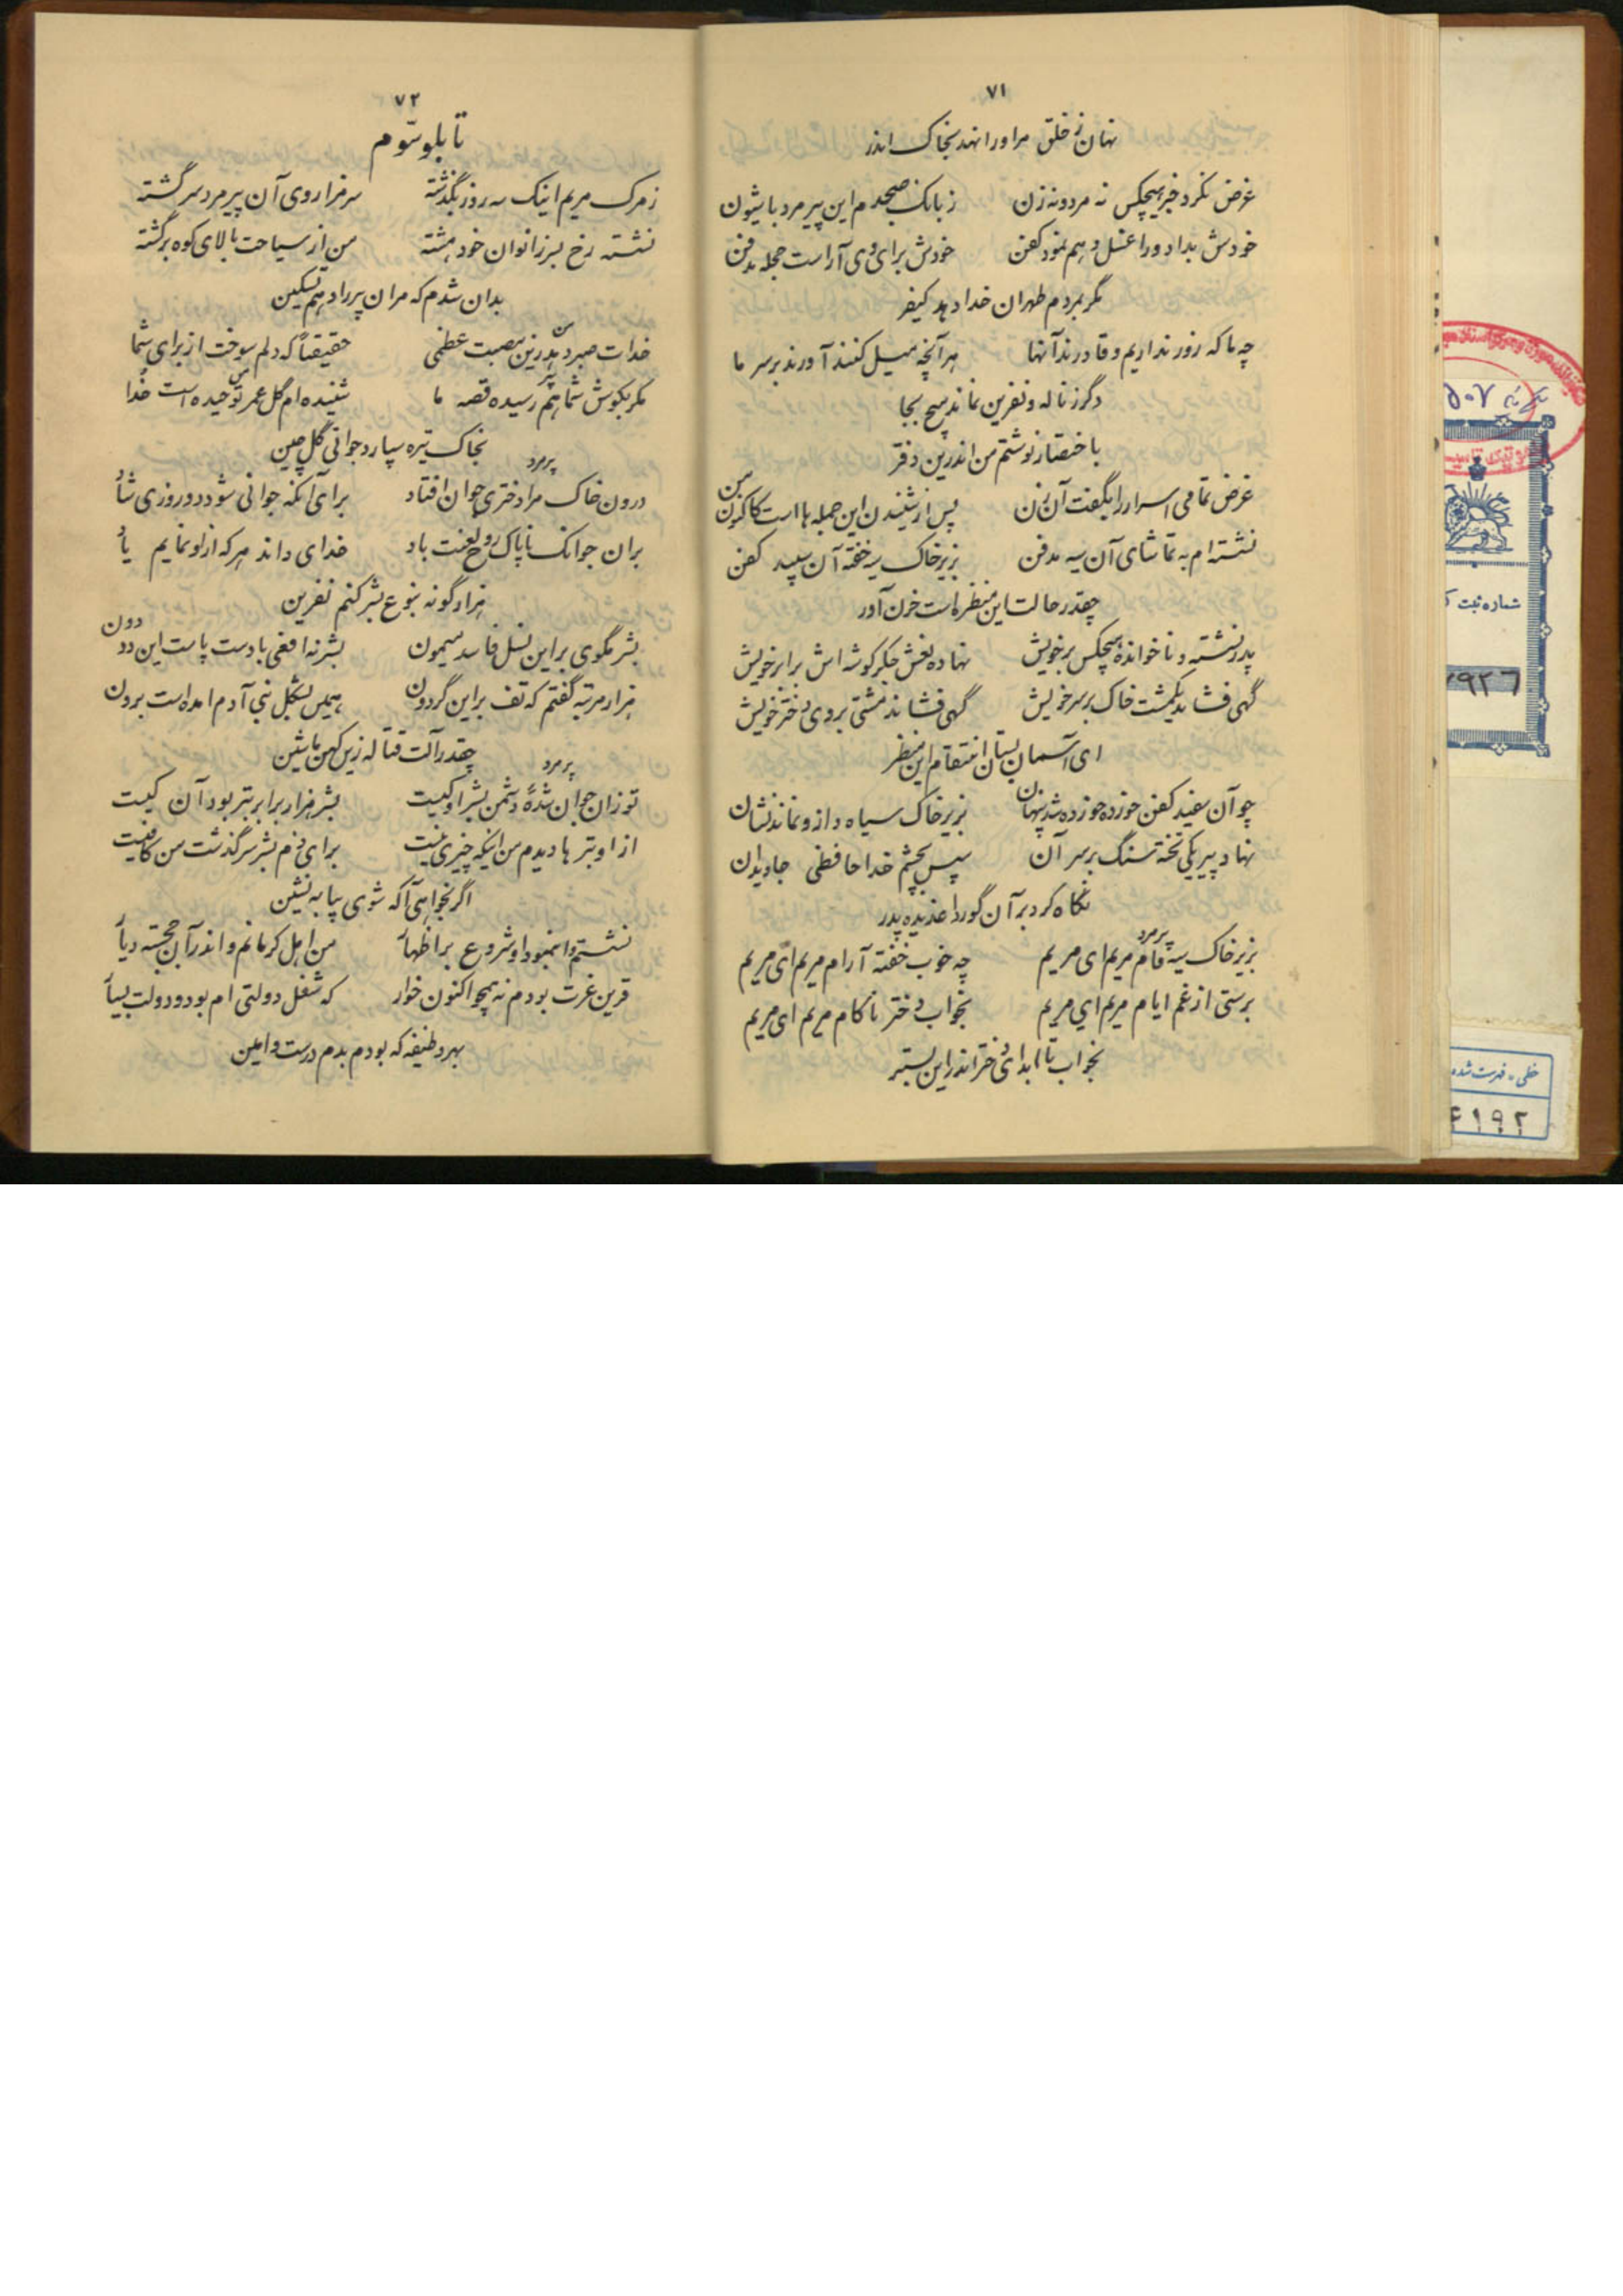 ۷۱
نهان ز خلق مر او را نهد بخاک اندر
غرض نکرد خبر هیچکس نه مرد و نه زن ز بانک صبحدم این پیر مرد با شیون
خودش بداد ورا غسل و هم نمود کفن خودش برای وی آراست حجله مدفن
مگر بمردم طهران خدا دهد کیفر
چه ما که زور نداریم و قادرند آنها هر آنچه میل کنند آورند بر سر ما
دگر ز ناله و نفرین نماند هیچ بجا
باختصار نوشتم من اندرین دفتر
غرض تمامی اسرار را بگفت آن زن پس از شنیدن این جمله ها است کاکنون من
نشسته ام به تماشای آن سیه مدفن بزیر خاک سیه خفته آن سپید کفن
چقدر حالت این منظره است حزن آور
پدر نشسته و ناخوانده هیچکس بر خویش نهاده نعش جگر گوشه اش برابر خویش
گهی فشاند یکمشت خاک بر سر خویش گهی فشاند مشتی بروی دختر خویش
ای آسمان بستان انتقام این منظر
چو آن سفید کفن خورده خورده شد پنهان بزیر خاک سیاه و از و نماند نشان
نهاد پیر یکی تخته سنگ بر سر آن سپس بچشم خدا حافظی جاویدان
نگاه کرد بر آن گور داغدیده پدر
پیر مرد
بزیر خاک سیه فام مریم ای مریم چه خوب خفته آرام مریم ای مریم
برستی از غم ایام مریم ای مریم بخواب دختر ناکام مریم ای مریم
بخواب تا ابد ای دختر اندر این بستر
۷۲
تابلو سوّم
ز مرک مریم اینک سه روز بگذشته سر مزار وی آن پیر مرد سر گشته
نشسته رخ بسر زانوان خود هشته من از سیاحت بالای کوه برگشته
بدان شدم که مر آن پیر را دهم تسکین
من
خدات صبر دهد زین مصیبت عظمی حقیقتاً که دلم سوخت از برای شما
پیر
مگر بگوش شما هم رسیده قصه ما
من
شنیده ام گل عمر تو چیده است خدا
بخاک تیره سپارد جوانی گل چین
پیر مرد
درون خاک مرا دختری جوان افتاد برای آنکه جوانی شود دو روزی شاد
بر آن جوانک ناپاک روح لعنت باد خدای داند هر که از او نمایم یاد
هزار گونه بنوع بشر کنم نفرین
بشر مگوی بر این نسل فاسد میمون بشر نه افعی با دست پاست این دد دون
هزار مرتبه گفتم که تف بر این گردون ببین بشکل بنی آدم امده است برون
چقدر آلت قتاله زین کهن ماشین
تو زان جوان شده ای دشمن بشر او کیست
پیر مرد
بشر هزار برابر بتر بود آن کیست
از او بتر ها دیدم من اینکه چیزی نیست برای ذم بشر سر گذشت من کافیست
اگر بخواهی آگه شوی بیا بنشین
نشستم و بنمود او شروع بر اظهار من اهل کرمانم و اندر آن خجسته دیار
قرین عزت بودم نه همچو اکنون خوار که شغل دولتی ام بود و دولت بسیار
بهر وظیفه که بودم بدم درست و امین
شماره ثبت ک
خطی - فهرست شده